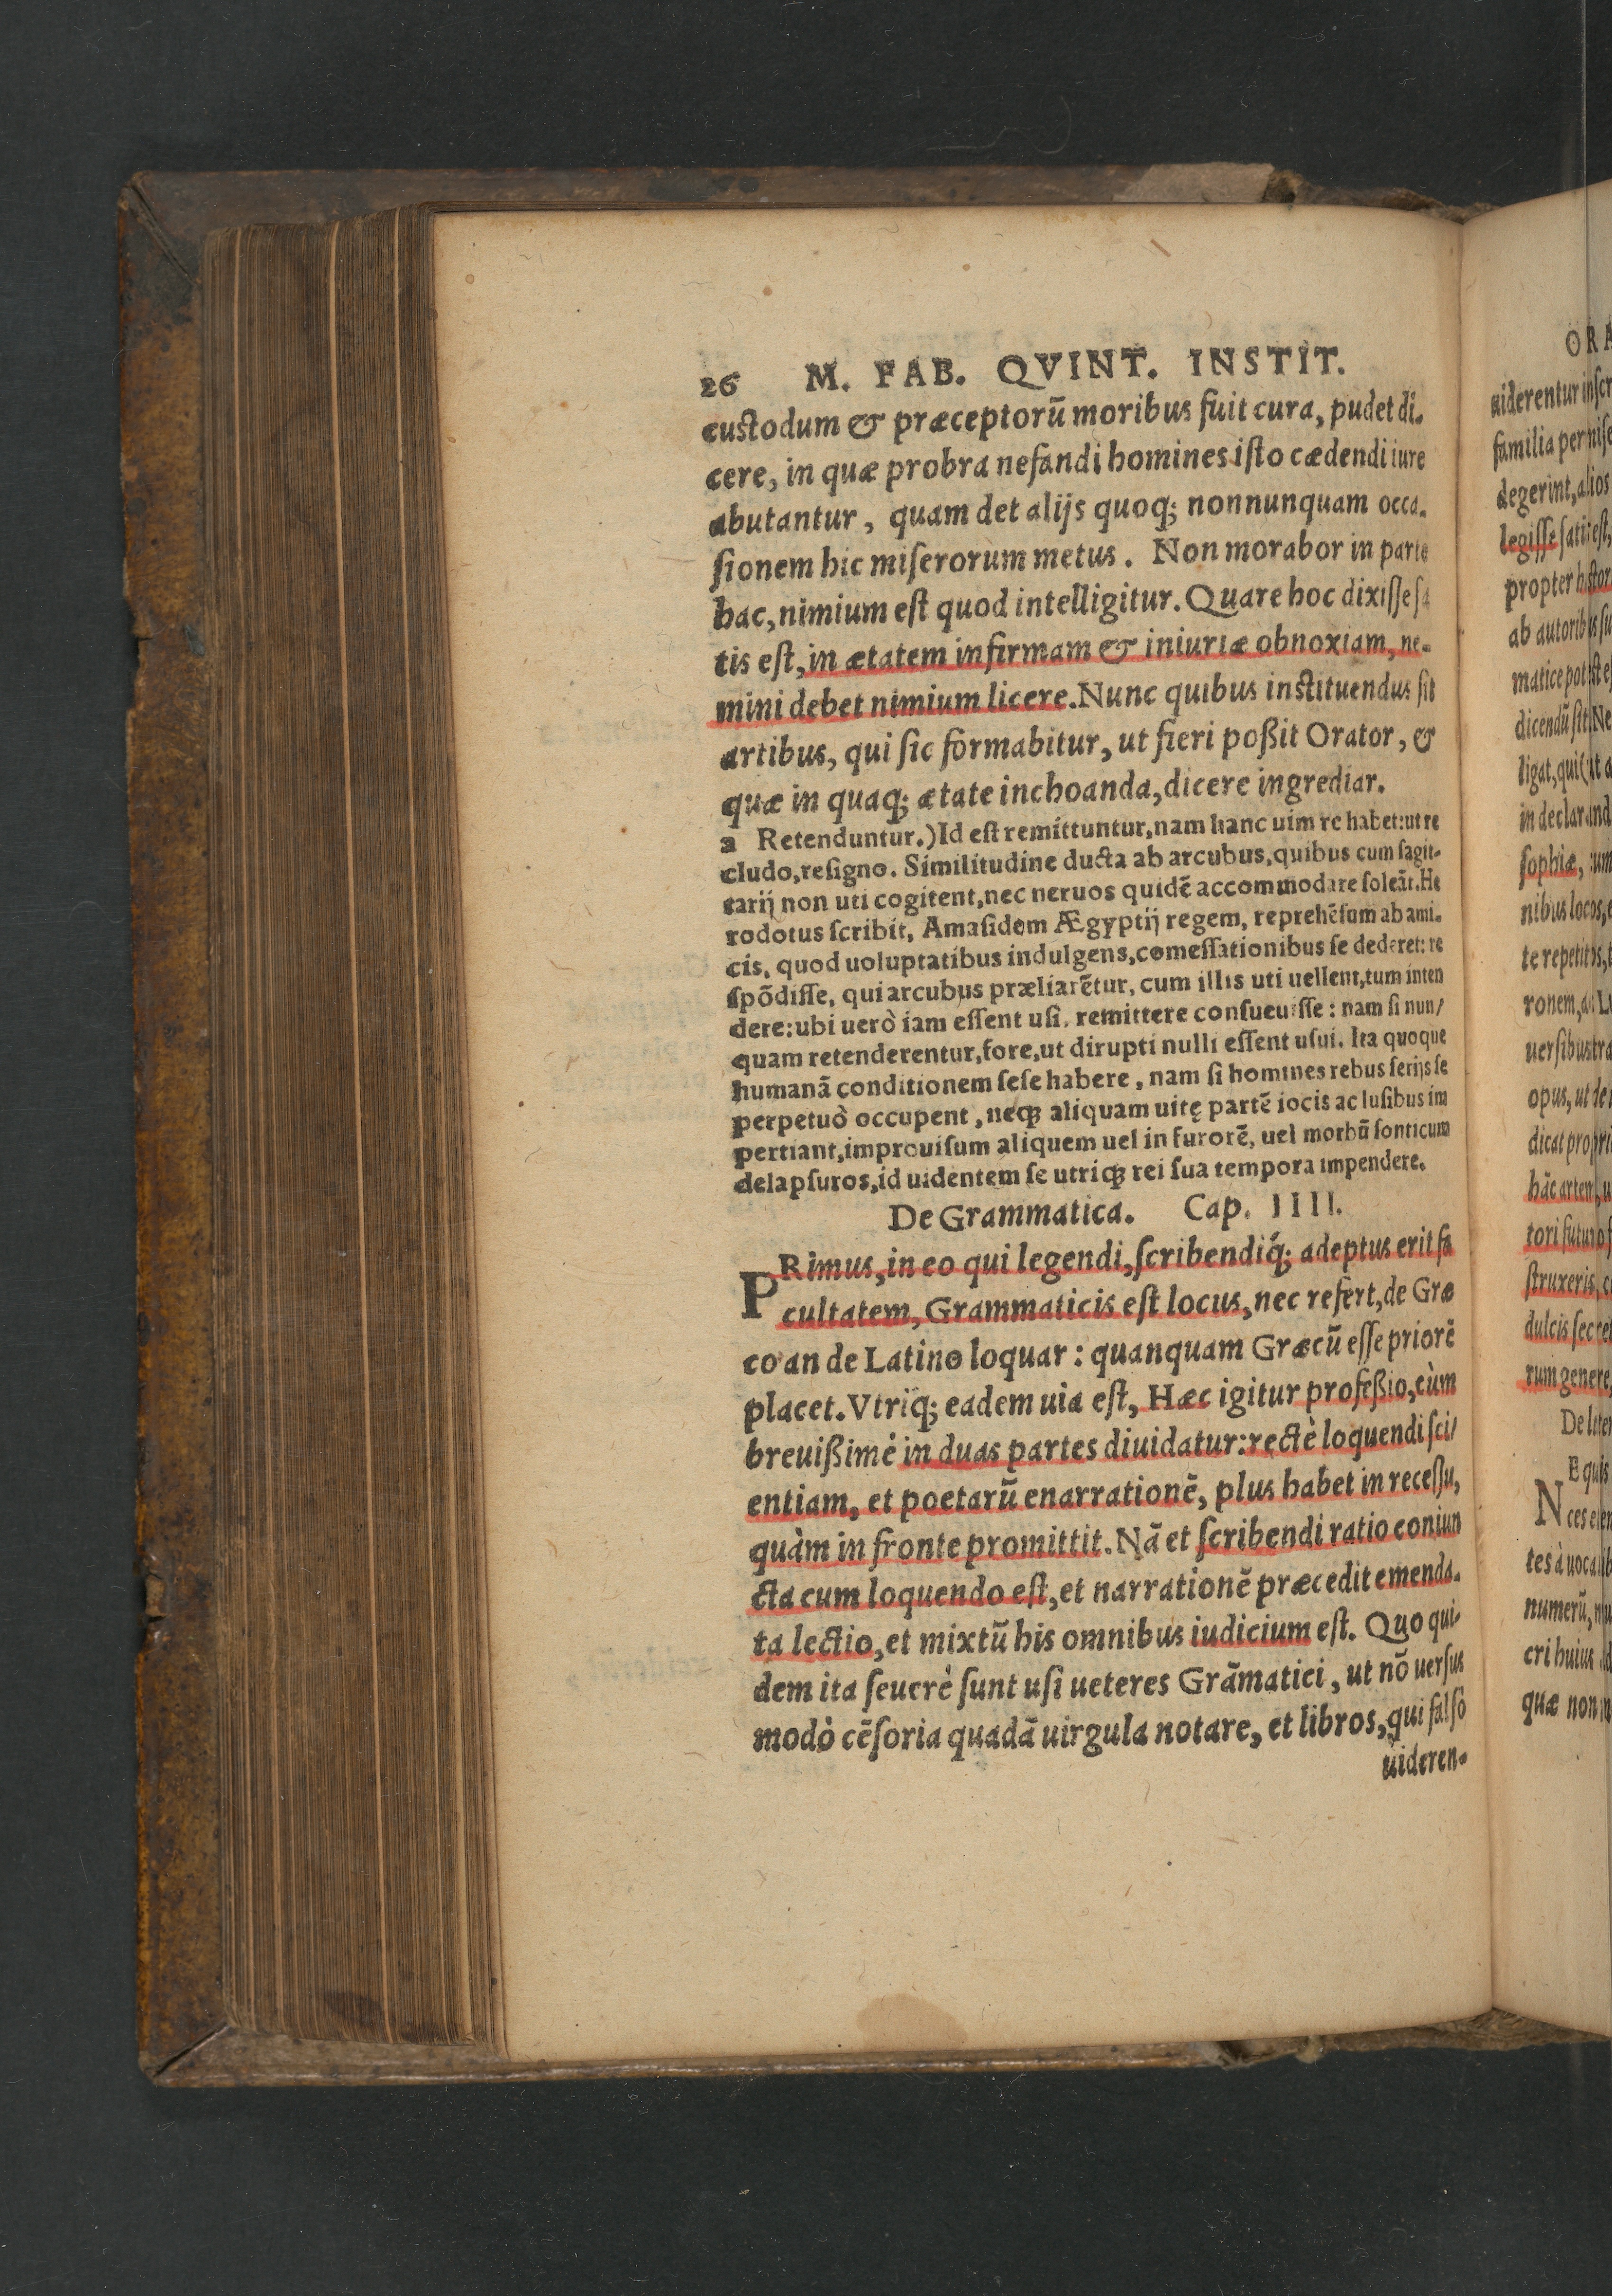 26 M. FAB. QVINT. INSTIT.
custodum & præceptorũ moribus fuit cura, pudet di-
cere, in quæ probra nefandi homines iſto cædendi iure
abutantur, quam det alijs quoq; nonnunquam occa-
ſionem hic miſerorum metus. Non morabor in parte
hac, nimium eſt quod intelligitur. Quare hoc dixiſſe ſa
tis eſt, in ætatem infirmam & iniuriæ obnoxiam, ne-
mini debet nimium licere. Nunc quibus inſtituendus ſit
artibus, qui ſic formabitur, ut fieri poßit Orator, &
quæ in quaq; ætate inchoanda, dicere ingrediar.
a Retenduntur.) Id eſt remittuntur, nam hanc uim re habet: ut re
cludo, reſigno. Similitudine ducta ab arcubus, quibus cum ſagit-
tarij non uti cogitent, nec neruos quidē accommodare ſoleāt. He
rodotus ſcribit, Amaſidem Ægyptij regem, reprehēſum ab ami-
cis, quod uoluptatibus indulgens, comeſſationibus ſe dederet: re
ſpōdiſſe, qui arcubus præliarētur, cum illis uti uellent, tum inten
dere: ubi uerò iam eſſent uſi, remittere conſueuiſſe: nam ſi nun/
quam retenderentur, fore, ut dirupti nulli eſſent uſui. Ita quoque
humanā conditionem ſeſe habere, nam ſi homines rebus ſerijs ſe
perpetuò occupent, neq; aliquam uitę partē iocis ac luſibus im
pertiant, improuiſum aliquem uel in furorē, uel morbū ſonticum
delapſuros, id uidentem ſe utriq; rei ſua tempora impendere.
De Grammatica. Cap. IIII.
PRimus, in eo qui legendi, ſcribendiq́; adeptus erit fa
cultatem, Grammaticis eſt locus, nec refert, de Græ
co an de Latino loquar: quanquam Græcũ eſſe priorē
placet. Vtriq; eadem uia eſt, Hæc igitur profeßio, cùm
breuißimè in duas partes diuidatur: rectè loquendi ſci/
entiam, et poetarũ enarrationē, plus habet in receſſu,
quàm in fronte promittit. Nā et ſcribendi ratio coniun
cta cum loquendo eſt, et narrationē præcedit emenda-
ta lectio, et mixtũ his omnibus iudicium eſt. Quo qui-
dem ita ſeuerè ſunt uſi ueteres Grāmatici, ut nō uerſus
modò cēſoria quadā uirgula notare, et libros, qui falſò
uideren-
ORA
uiderentur inſcr
familia per
degerint, alios
legiſſe ſatis eſt,
propter hiſtor
ab autoribus ſu
matice poteſt eſ
dicendũ ſit Ne
ligat, qui (ut a
in declarand
ſophiæ, cum
nibus locos,
te repetitos,
ronem, ac Lu
uerſibus tra
opus, ut de
dicat propri
hāc artem, u
tori futuro f
ſtruxeris, 
dulcis ſecre
rum genere,
De liter
NE quis
ces elem
tes à uocalib
numerũ,
cri huius
quæ non